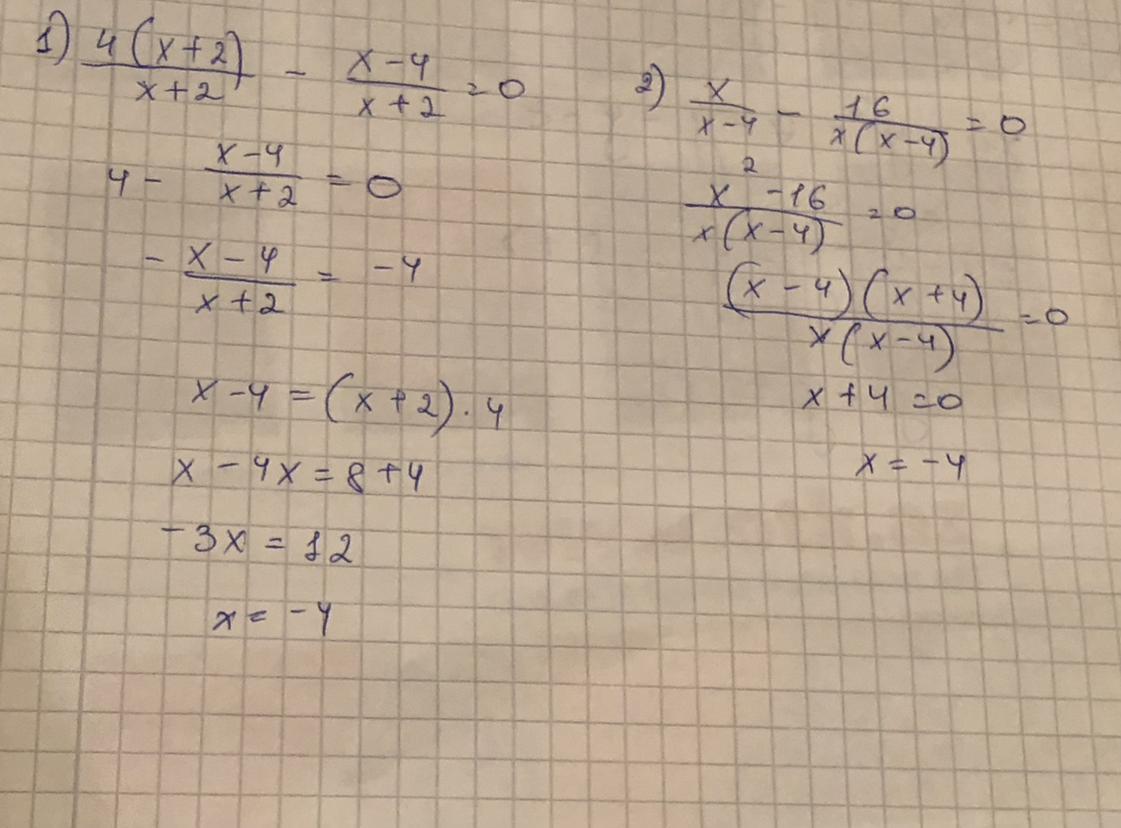 1) 4(x+2)/(x+2) - (x-4)/(x+2) = 0
4 - (x-4)/(x+2) = 0
- (x-4)/(x+2) = -4
x-4 = (x+2)·4
x - 4x = 8+4
-3x = 12
x = -4
2) x/(x-4) - 16/(x(x-4)) = 0
(x²-16)/(x(x-4)) = 0
((x-4)(x+4))/(x(x-4)) = 0
x+4 = 0
x = -4